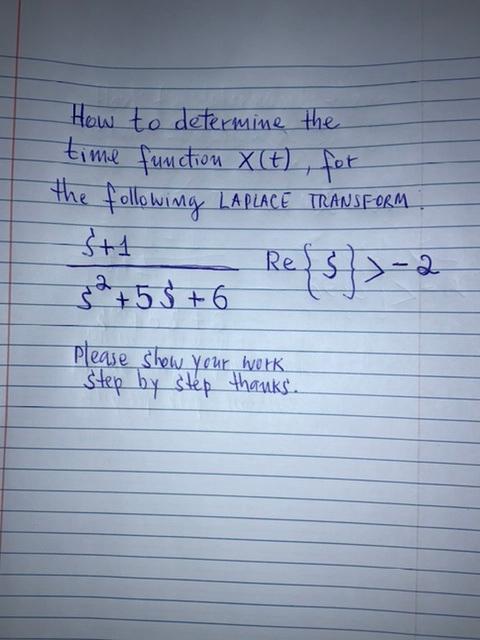 How to determine the
time function X(t), for
the following LAPLACE TRANSFORM:
s+1
Re{s}>-2
s²+5s+6
Please show your work
step by step thanks.